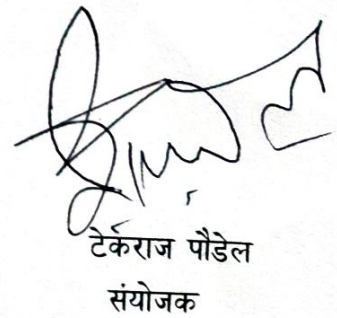 टेकराज पौडेल
संयोजक